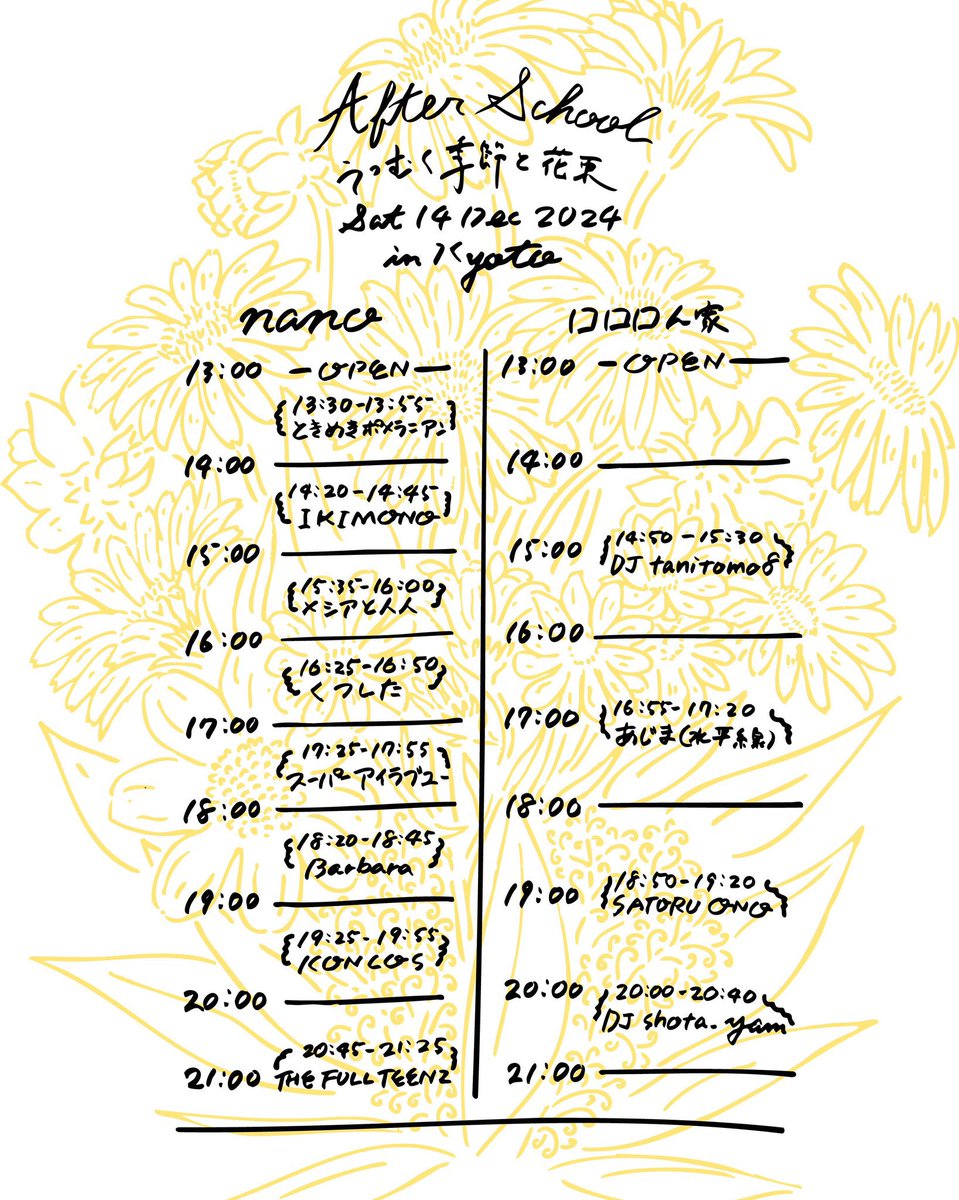 After School
うつむく季節と花束
Sat 14 Dec 2024
in Kyoto
nano
13:00 — OPEN —
13:30-13:55
ときめきポメラニアン
14:00
14:20-14:45
IKIMONO
15:00
15:35-16:00
メシアと人人
16:00
16:25-16:50
くつした
17:00
17:25-17:55
スーパーアイラブユー
18:00
18:20-18:45
Barbara
19:00
19:25-19:55
KONCOS
20:00
20:45-21:25
21:00 THE FULL TEENZ
ロロロん家
13:00 — OPEN —
14:00
14:50-15:30
15:00
DJ tanitomo8
16:00
16:55-17:20
17:00
あじま(水平線)
18:00
18:50-19:20
19:00
SATORU ONO
20:00
20:00-20:40
DJ shota.yam
21:00